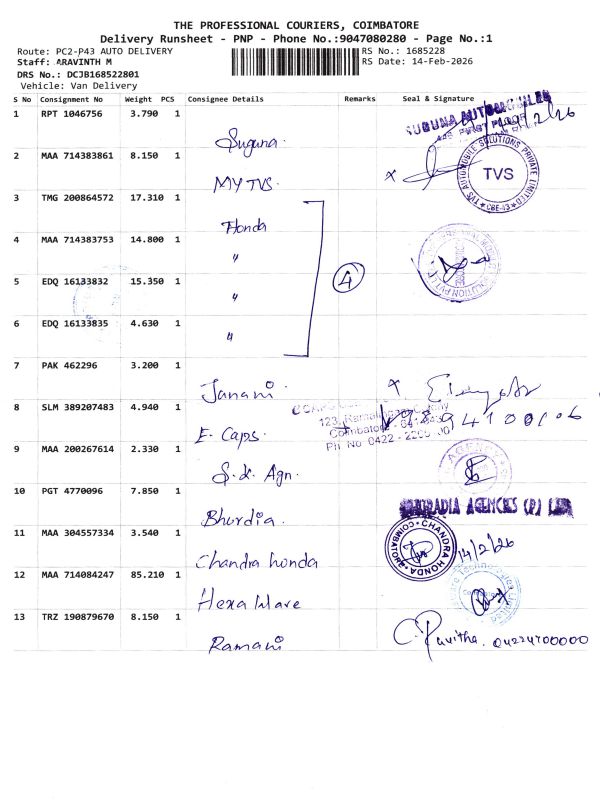 THE PROFESSIONAL COURIERS, COIMBATORE
Delivery Runsheet - PNP - Phone No.:9047080280 - Page No.:1
Route: PC2-P43 AUTO DELIVERY
RS No.: 1685228
Staff: ARAVINTH M
RS Date: 14-Feb-2026
DRS No.: DCJB168522801
Vehicle: Van Delivery
S No Consignment No Weight PCS Consignee Details Remarks Seal & Signature
1 RPT 1046756 3.790 1
Suguna.
SUGUNA AUTOMOBILES
FIRST FLOOR
2 MAA 714383861 8.150 1
MY TVS.
x
TVS AUTOMOBILE SOLUTIONS PRIVATE LIMITED
TVS
CBE-43
3 TMG 200864572 17.310 1
Honda
4 MAA 714383753 14.800 1
"
4
5 EDQ 16133832 15.350 1
"
6 EDQ 16133835 4.630 1
"
7 PAK 462296 3.200 1
Janani.
x
8 SLM 389207483 4.940 1
E. Caps.
Ph No 0422 -
9 MAA 200267614 2.330 1
S.K. Agn.
10 PGT 4770096 7.850 1
Bhurdia.
AGENCIES (P) LTD
11 MAA 304557334 3.540 1
Chandra honda
CHANDRA HONDA
COIMBATORE
14/2/26
12 MAA 714084247 85.210 1
Hexa Ware
13 TRZ 190879670 8.150 1
Ramani
C. Pavitha.